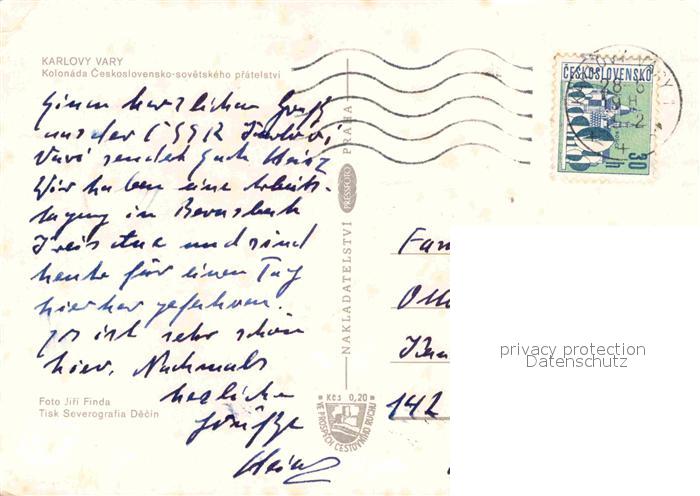 KARLOVY VARY
Kolonáda Československo-sovětského přátelství
Einen herzlichen Gruß
aus der ČSSR Karlovi
Vari sendet Euch Heinz
Wir haben eine Arbeits-
tagung in
Kreis Aue und sind
heute für einen Tag
hierher gefahren.
Es ist sehr schön
hier. Nochmals
herzliche
Grüße
Heinz
Foto Jiří Finda
Tisk Severografia Děčín
NAKLADATELSTVÍ PRESSFOTO PRAHA
Kčs 0,20
VE PROSPĚCH CESTOVNÍHO RUCHU
ČESKOSLOVENSKO
30 h
Fam
Otto
142
privacy protection
Datenschutz